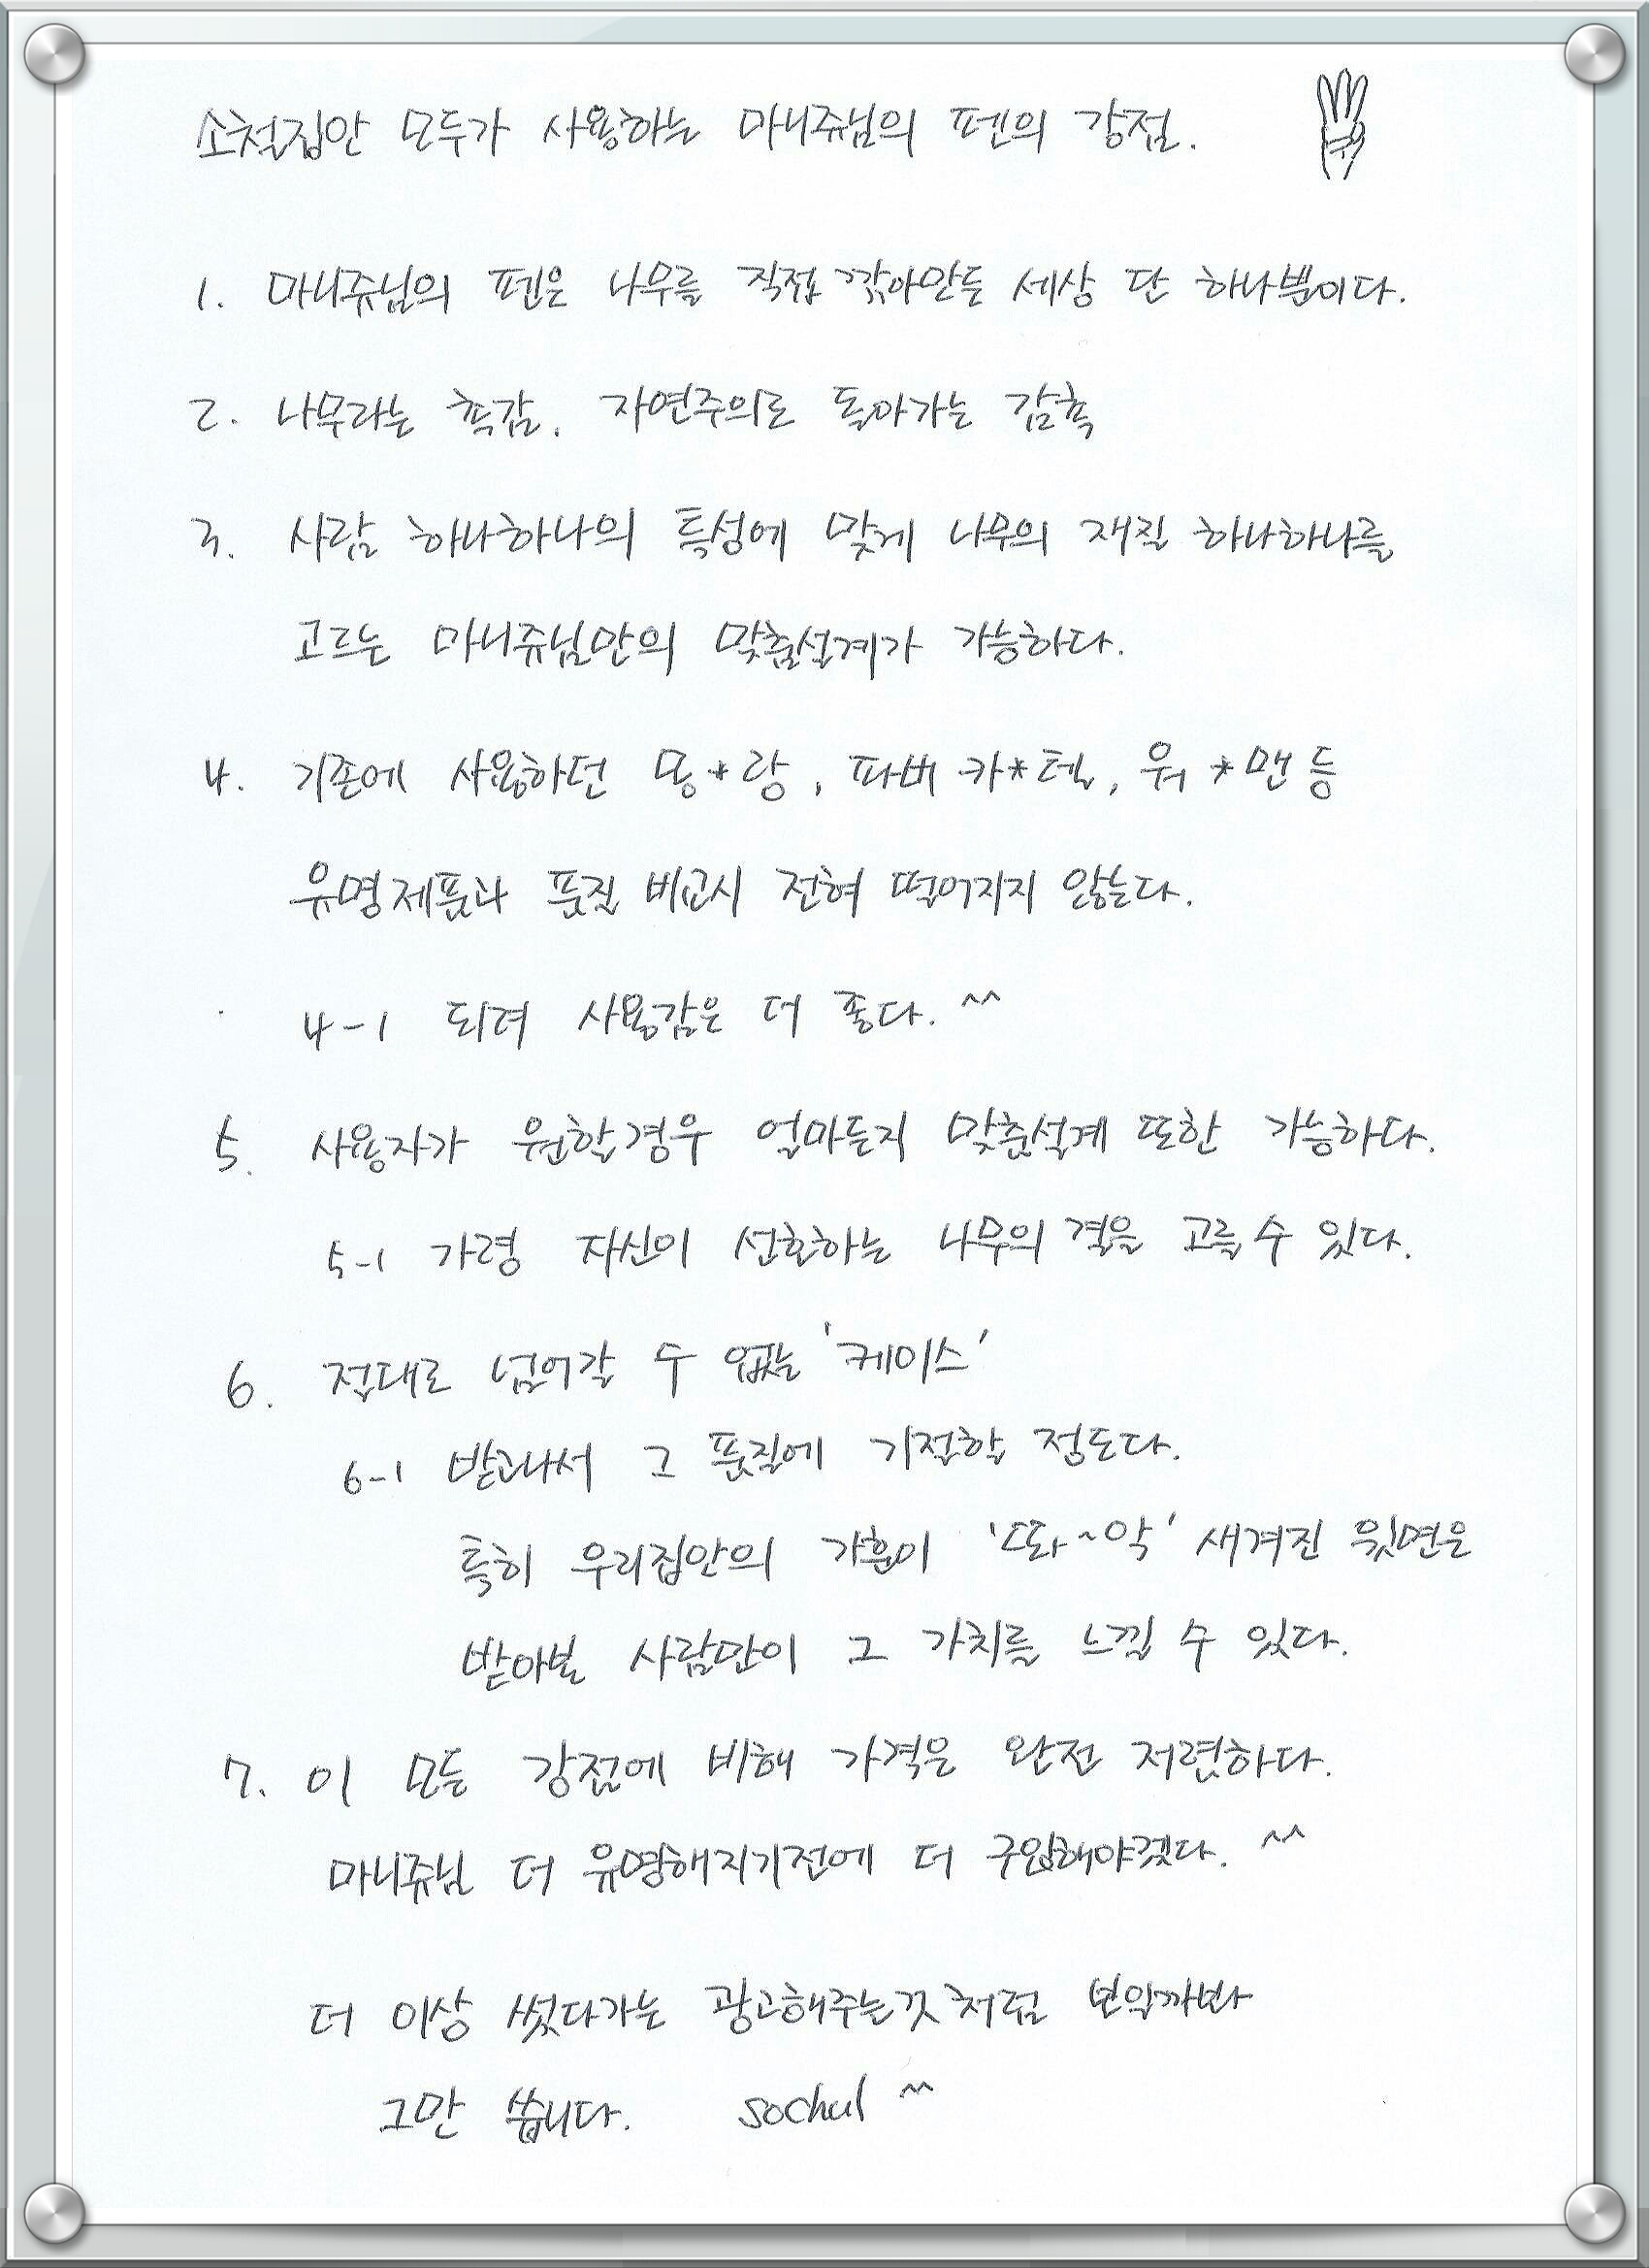 소철집안 모두가 사용하는 마니쥬님의 펜의 강점.
1. 마니쥬님의 펜은 나무를 직접 깎아만든 세상 단 하나뿐이다.
2. 나무라는 촉감. 자연주의로 돌아가는 감촉
3. 사람 하나하나의 특성에 맞게 나무의 재질 하나하나를
고르는 마니쥬님만의 맞춤설계가 가능하다.
4. 기존에 사용하던 몽*랑, 파버 카*텔, 워*맨 등
유명제품과 품질 비교시 전혀 떨어지지 않는다.
4-1 되려 사용감은 더 좋다. ^^
5. 사용자가 원할경우 얼마든지 맞춤설계 또한 가능하다.
5-1 가령 자신이 선호하는 나무의 결을 고를 수 있다.
6. 절대로 넘어갈 수 없는 '케이스'
6-1 받고나서 그 품질에 기절할 정도다.
특히 우리집안의 가훈이 '똬~악' 새겨진 윗면은
받아본 사람만이 그 가치를 느낄 수 있다.
7. 이 모든 강점에 비해 가격은 완전 저렴하다.
마니쥬님 더 유명해지기전에 더 구입해야겠다. ^^
더 이상 썼다가는 광고해주는것처럼 보일까봐
그만 씁니다. sochul ^^